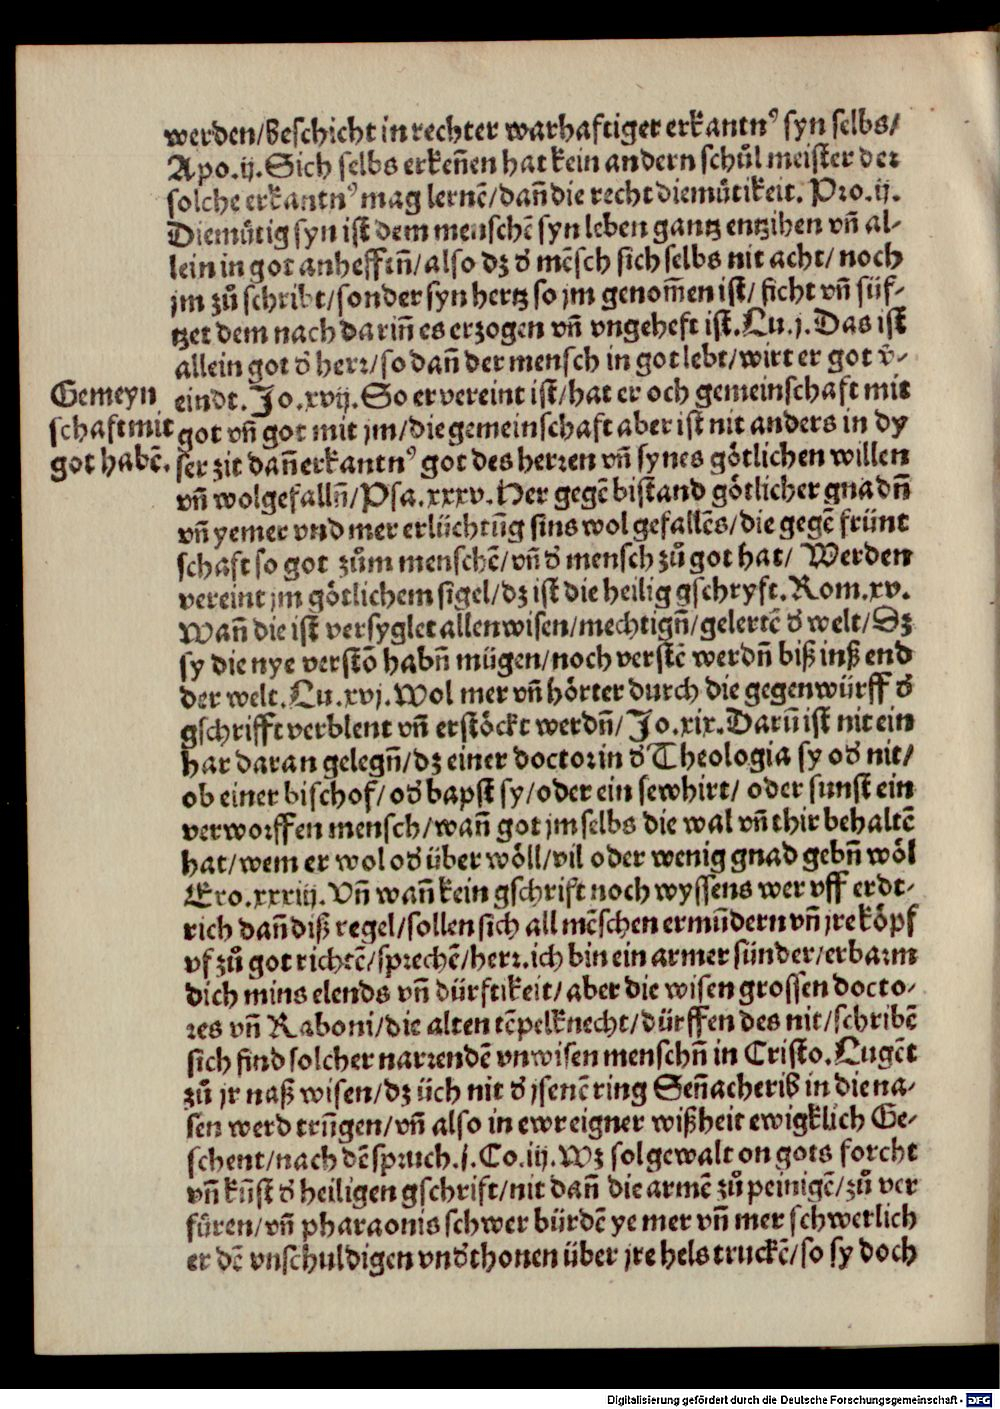 werden/Beschicht in rechter warhaftiger erkantnꝰ syn selbs/
Apo.ij. Sich selbs erkeñen hat kein andern schůl meister der
solche erkantnꝰ mag lernē/dañ die recht diemůtikeit. Pro.ij.
Diemůtig syn ist dem menschē syn leben gantz entzihen vñ al-
lein in got anhefftñ/also dz d̕ mēsch sich selbs nit acht/ noch
jm zů schribt/sonder syn hertz so jm genom̄en ist/ sicht vñ süf-
tzet dem nach dariñ es erzogen vñ vngeheft ist. Lu.j. Das ist
allein got d̕ herr/so dañ der mensch in got lebt/wirt er got v̕-
eindt. Jo.xvij. So er vereint ist/hat er och gemeinschaft mit
Gemeyn
schaft mit
got habē.
got vñ got mit jm/die gemeinschaft aber ist nit anders in dy
ser zit dañ erkantnꝰ got des herren vñ synes götlichen willen
vñ wolgefallñ/Psa.xxxv. Her gegē bistand götlicher gnadñ
vñ yemer vnd mer erlüchtūg sins wol gefallēs/die gegē fründt
schaft so got zům menschē/vñ d̕ mensch zů got hat/ Werden
vereint jm götlichem sigel/dz ist die heilig gschryft. Rom.xv.
Wañ die ist versyglet allen wisen/mechtigñ/gelertē d̕ welt/Dz
sy die nye verstō habñ mügen/noch verstē werdñ biß inß end
der welt. Lu.xvj. Wol mer vñ hörter durch die gegenwürff d̕
gschrifft verblent vñ erstöckt werdñ/ Jo.xix. Darū ist nit ein
har daran gelegñ/dz einer doctor in d̕ Theologia sy od̕ nit/
ob einer bischof/ od̕ bapst sy/oder ein sewhirt/ oder sunst ein
verworffen mensch/wañ got jm selbs die wal vñ thir behaltē
hat/wem er wol od̕ über wöll/vil oder wenig gnad gebñ wöl
Ero.xxxiij. Vñ wañ kein gschrift noch wyssens wer vff erdt-
rich dañ diß regel/sollen sich all mēschen ermūdern vñ jre köpf
vf zů got richtē/sprechē/herr.ich bin ein armer sünder/erbarm
dich mins elends vñ dürftikeit/aber die wisen grossen docto-
res vñ Raboni/die alten tēpelknecht/dürffen des nit/schribē
sich sind solcher narrendē vnwisen menschñ in Cristo. Lugēt
zů jr naß wisen/dz üch nit d̕ jsenē ring Señacherib in die na-
sen werd trūgen/vñ also in ewr eigner wißheit ewigklich Ge-
schent/nach dē spruch.j.Co.iij. Wz sol gewalt on gots forcht
vñ kūst d̕ heiligen gschrift/nit dañ die armē zů peinigē/zů ver
fůren/vñ pharaonis schwer bürdē ye mer vñ mer schwerlich
er dē vnschuldigen vnd̕thonen über jre hels truckē/so sy doch
Digitalisierung gefördert durch die Deutsche Forschungsgemeinschaft - DFG